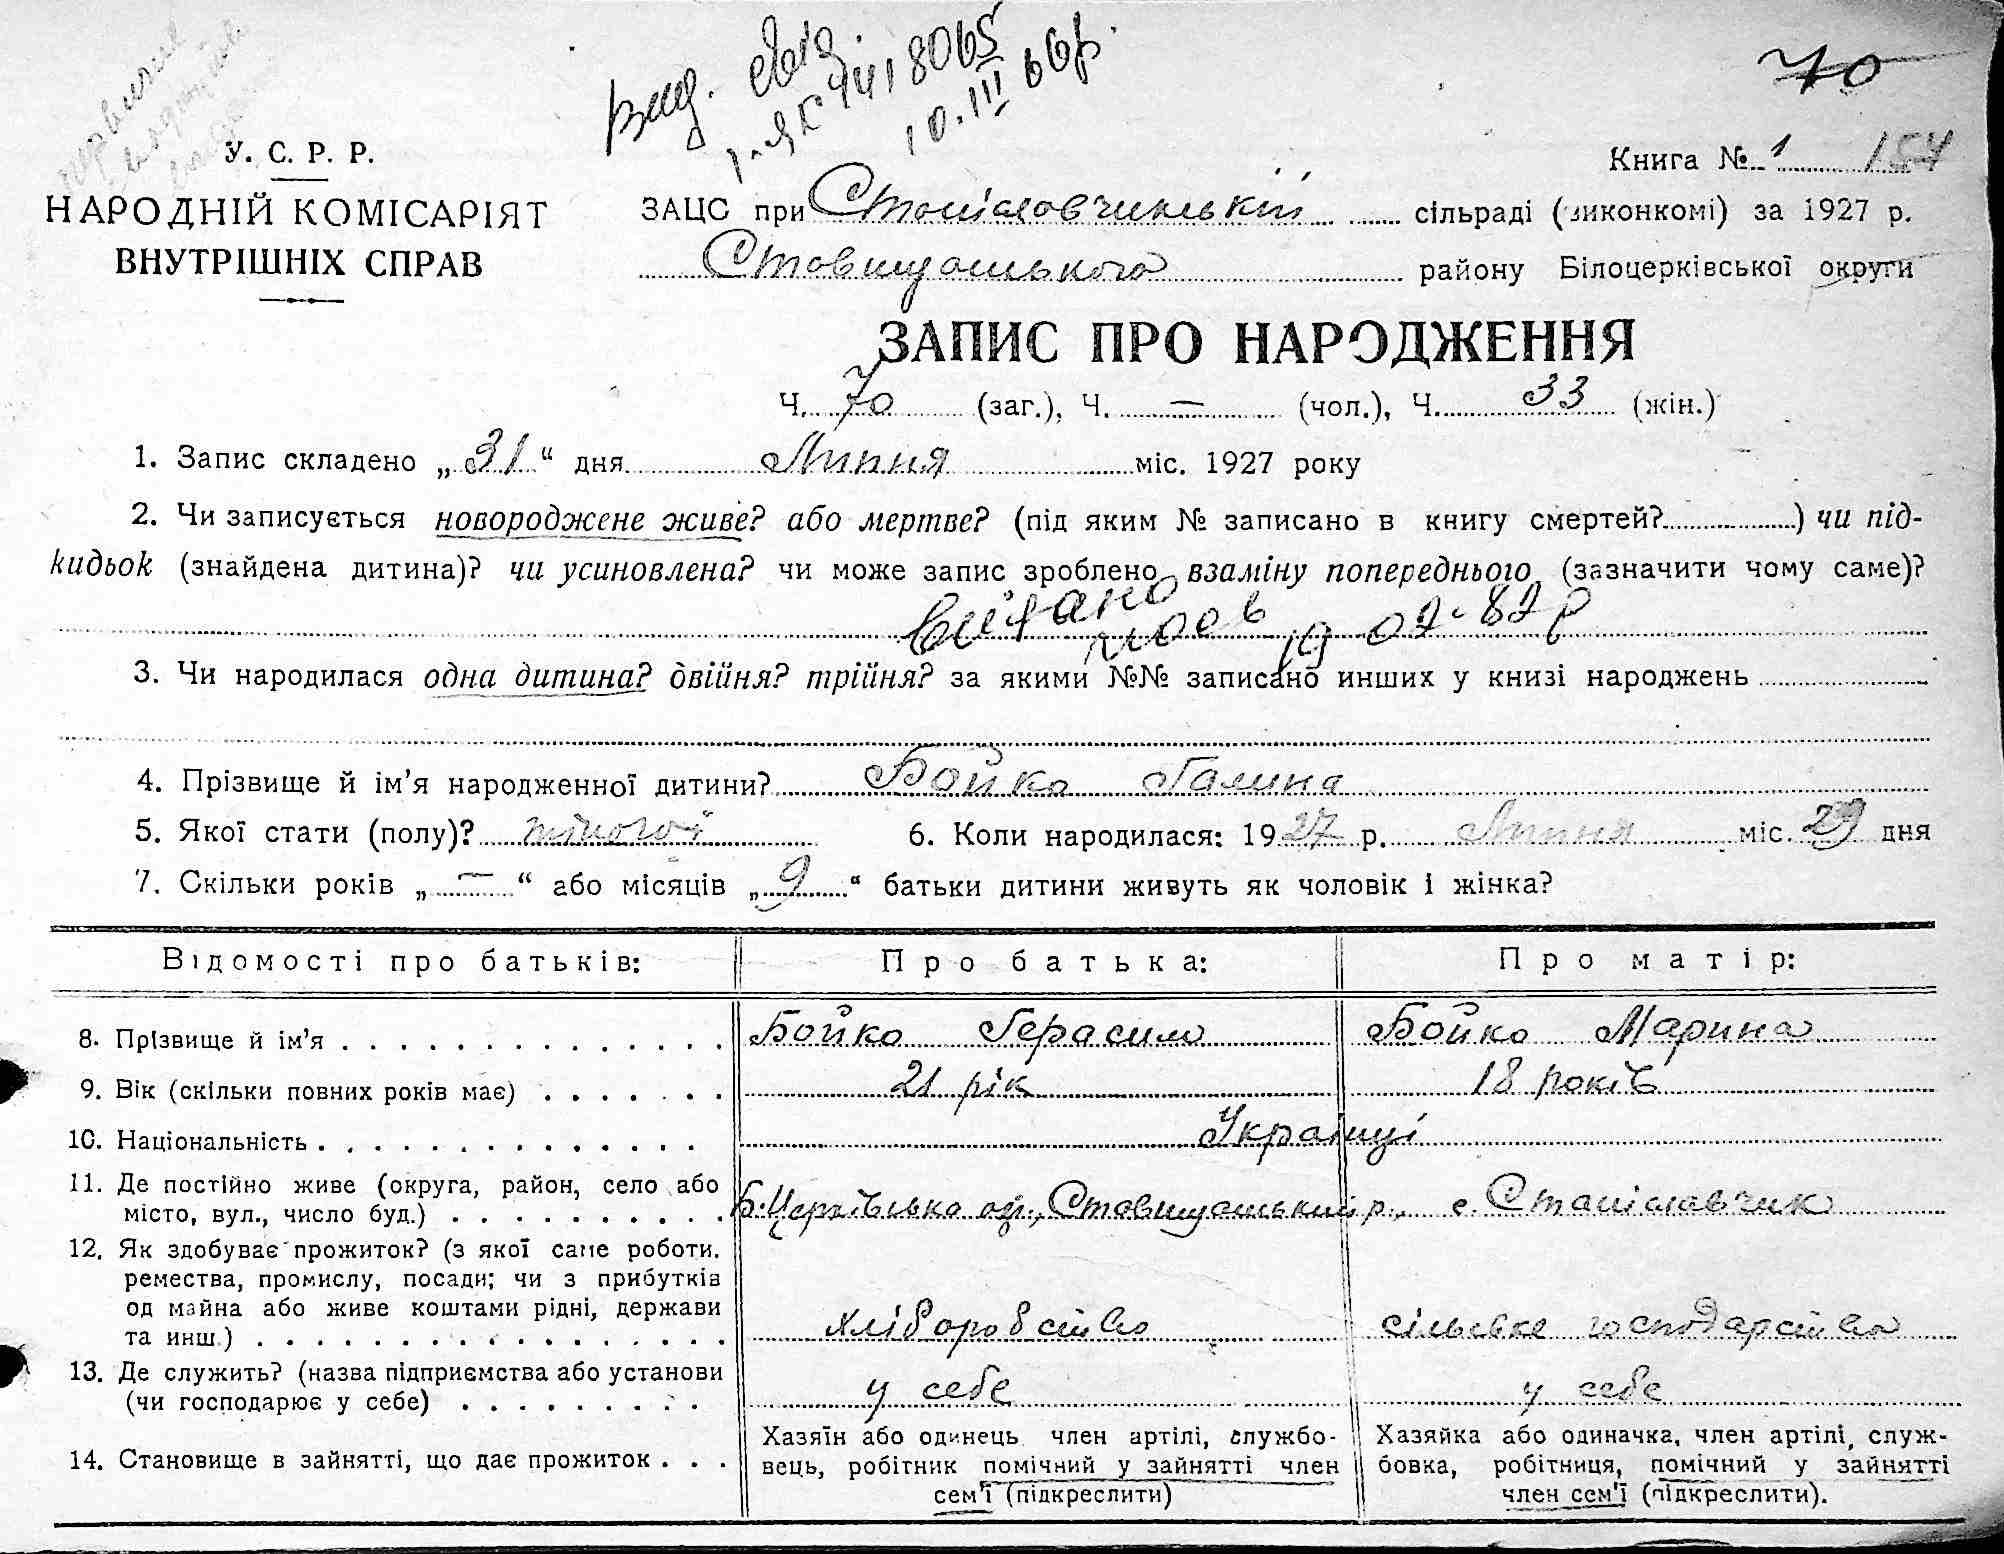 Вид. свід.
І-ЯК 4418065
10.III 66р.
70
У. С. Р. Р.
НАРОДНІЙ КОМІСАРІЯТ
ВНУТРІШНІХ СПРАВ
Книга № 1 154
ЗАЦС при Станіславчинській сільраді (виконкомі) за 1927 р.
Ставищанського району Білоцерківської округи
ЗАПИС ПРО НАРОДЖЕННЯ
Ч. 70 (заг.), Ч. — (чол.), Ч. 33 (жін.)
1. Запис складено „31“ дня Липня міс. 1927 року
2. Чи записується новороджене живе? або мертве? (під яким № записано в книгу смертей? ) чи під-
кидьок (знайдена дитина)? чи усиновлена? чи може запис зроблено взаміну попереднього (зазначити чому саме)?
19 02-82р
3. Чи народилася одна дитина? двійня? трійня? за якими №№ записано инших у книзі народжень
4. Прізвище й ім’я народженної дитини? Бойко Галина
5. Якої стати (полу)? жіночої 6. Коли народилася: 1927 р. Липня міс. 29 дня
7. Скільки років „—“ або місяців „9“ батьки дитини живуть як чоловік і жінка?
Відомості про батьків: Про батька: Про матір:
8. Прізвище й ім’я Бойко Герасим Бойко Марина
9. Вік (скільки повних років має) 21 рік 18 років
10. Національність Українці
11. Де постійно живе (округа, район, село або
місто, вул., число буд.) Б.Церківська ок., Ставищанський р., с. Станіславчик
12. Як здобуває прожиток? (з якої саме роботи,
ремества, промислу, посади; чи з прибутків
од майна або живе коштами рідні, держави
та инш.) хліборобство сільське господарство
13. Де служить? (назва підприємства або установи
(чи господарює у себе) у себе у себе
14. Становище в зайнятті, що дає прожиток
Хазяїн або одинець член артілі, службо-
вець, робітник помічний у зайнятті член
сем’ї (підкреслити)
Хазяйка або одиначка, член артілі, служ-
бовка, робітниця, помічний у зайнятті
член сем’ї (підкреслити).